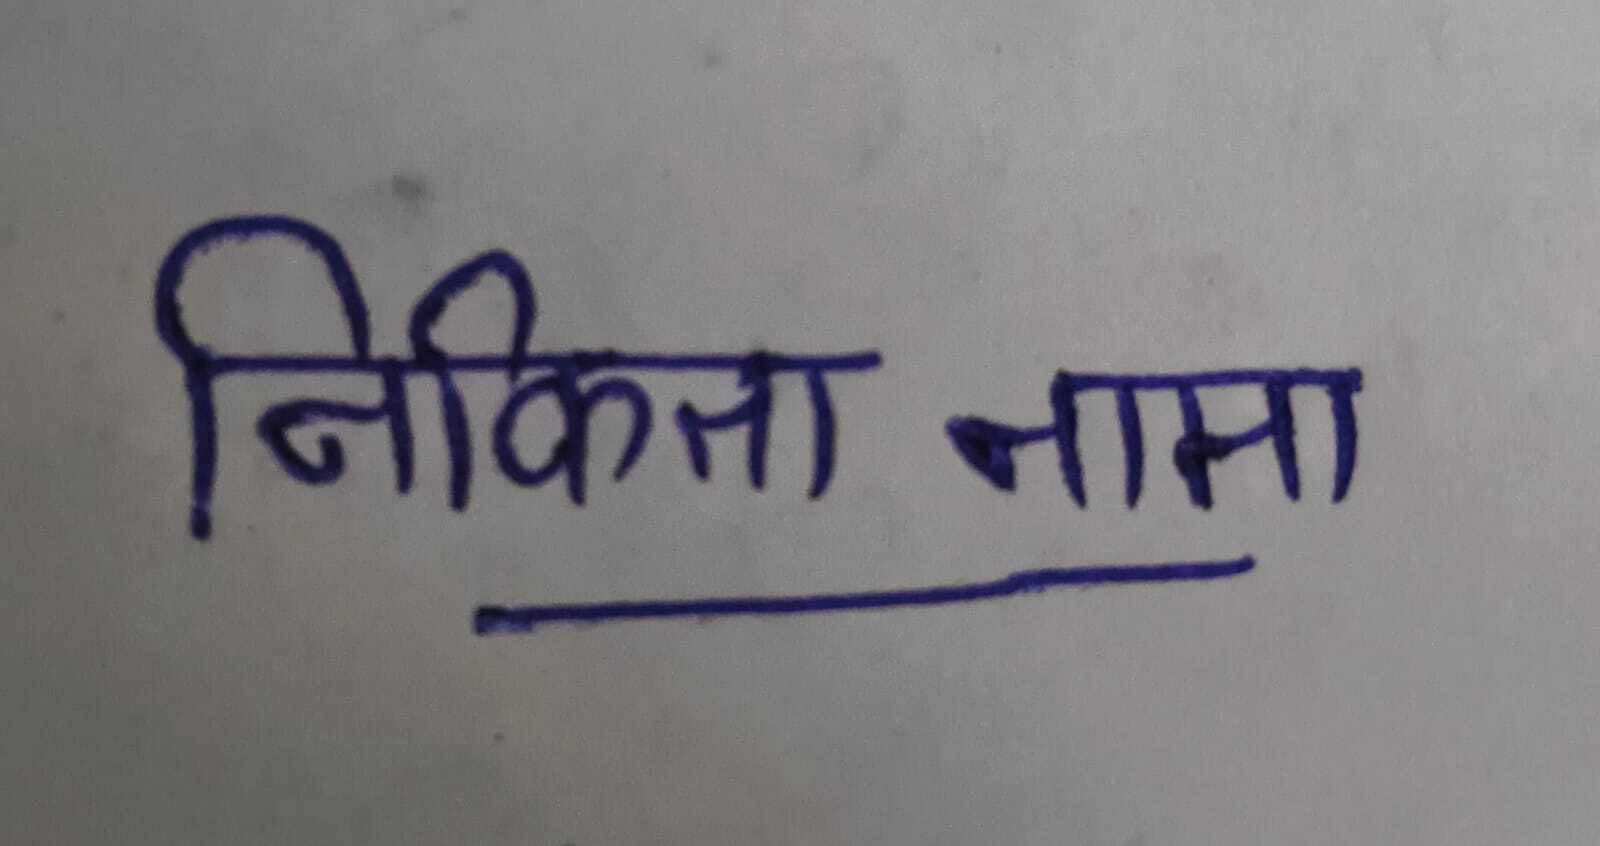 निकिता नामा